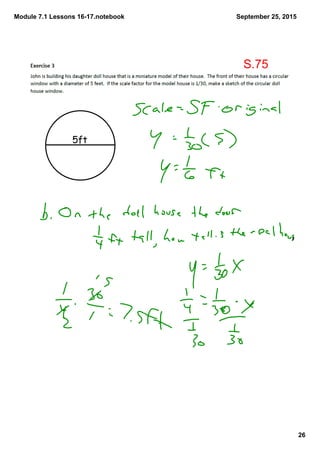 Module 7.1 Lessons 16-17.notebook
September 25, 2015
Exercise 3
S.75
John is building his daughter doll house that is a miniature model of their house. The front of their house has a circular
window with a diameter of 5 feet. If the scale factor for the model house is 1/30, make a sketch of the circular doll
house window.
Scale = SF · original
5ft
y = 1/30 (5)
y = 1/6 ft
b. On the doll house the door
1/4 ft tall, how tall is the real house
y = 1/30 x
1/4 · 30/1 = 7.5ft
2 15
1/4 = 1/30 · x
1/30 1/30
26